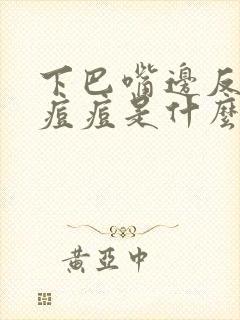 下巴嘴邊反
痘痘是什麼
黃亞中